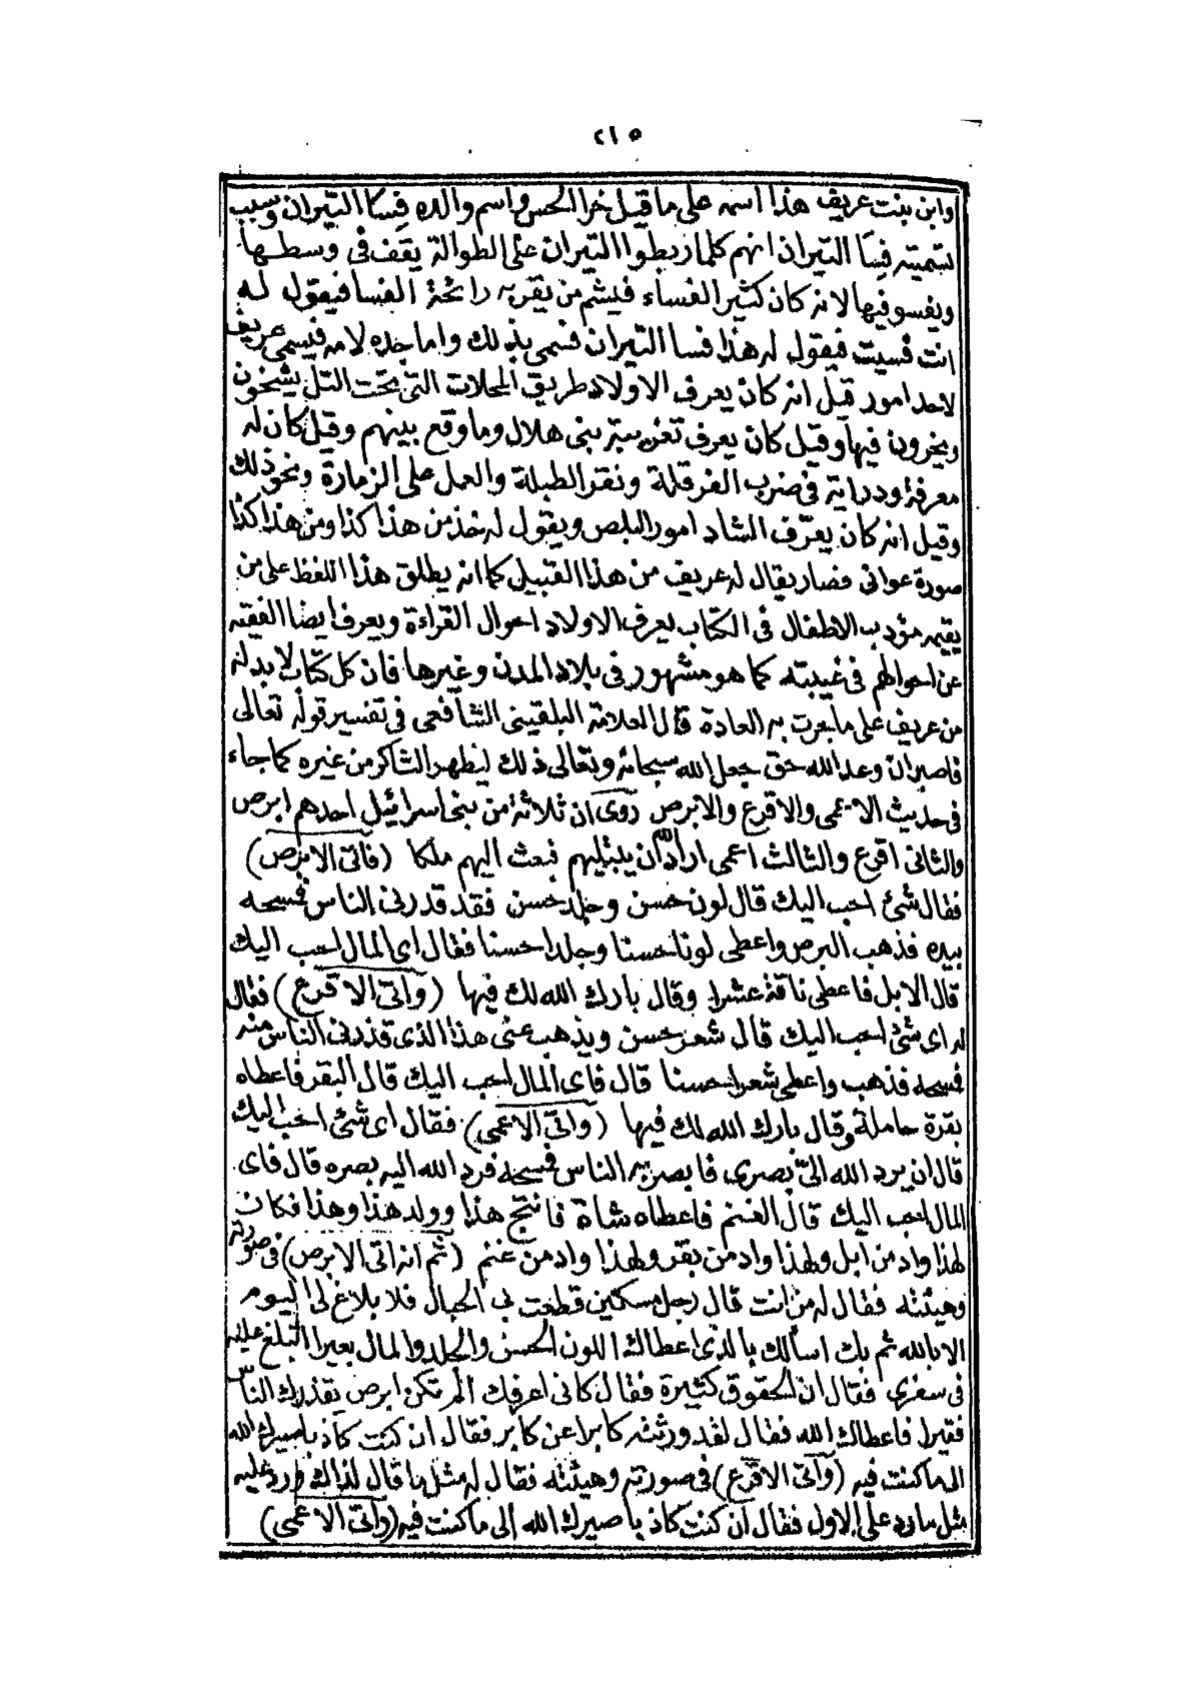 ٢١٥
وابن بنت عريف هذا اسمه على ما قيل خرا الحس واسم والده فسا التيران وسبب
تسميته فسا التيران انهم كلما ربطوا التيران على الطوالة يقف فى وسطها
ويفسو فيها لانه كان كثير الفساء فيشم من يقربه رائحة الفسا فيقول له
انت فسيت فيقول له هذا فسا التيران فسمى بذلك واما جده لامه فيسمى عريف
لاحد امور قيل انه كان يعرف الاولاد طريق المحلات التى تحت التل يشخون
ويخرون فيها وقيل كان يعرف تغريبة بنى هلال وما وقع بينهم وقيل كان له
معرفة ودراية فى ضرب الفرقلة ونقر الطبلة والعمل على الزمارة ونحو ذلك
وقيل انه كان يعرّف الشاد امور البلص ويقول له خذ من هذا كذا ومن هذا كذا
صورة عوانى فصار يقال له عريف من هذا القبيل كما انه يطلق هذا اللفظ على من
يقيمه مؤدب الاطفال فى الكتاب يعرف الاولاد احوال القراءة ويعرف ايضا الفقيه
عن احوالهم فى غيبته كما هو مشهور فى بلاد المدن وغيرها فان كل كتاب لا بد له
من عريف على ما جرت به العادة قال العلامة البلقينى الشافعى فى تفسير قوله تعالى
فاصبر ان وعد الله حق جعل الله سبحانه وتعالى ذلك ليظهر الشاكر من غيره كما جاء
فى حديث الاعمى والاقرع والابرص روى ان ثلاثة من بنى اسرائيل احدهم ابرص
والثانى اقرع والثالث اعمى اراد الله ان يبتليهم فبعث اليهم ملكا (فاتى الابرص)
فقال شئ احب اليك قال لون حسن وجلد حسن فقد قذرنى الناس فمسحه
بيده فذهب البرص واعطى لونا حسنا وجلدا حسنا فقال اى المال احب اليك
قال الابل فاعطى ناقة عشرا وقال بارك الله لك فيها (واتى الاقرع) فقال
له اى شئ احب اليك قال شعر حسن ويذهب عنى هذا الذى قذرنى الناس منه
فمسحه فذهب واعطى شعرا حسنا قال فاى المال احب اليك قال البقر فاعطاه
بقرة حاملة وقال بارك الله لك فيها (واتى الاعمى) فقال اى شئ احب اليك
قال ان يرد الله الىّ بصرى فابصر به الناس فمسحه فرد الله اليه بصره قال فاى
المال احب اليك قال الغنم فاعطاه شاة فانتج هذا وولد هذا وهذا فكان
لهذا واد من ابل ولهذا واد من بقر ولهذا واد من غنم (ثم انه اتى الابرص) فى صورته
وهيئته فقال له من انت قال رجل مسكين قطعت بى الحبال فلا بلاغ لى اليوم
الا بالله ثم بك اسألك بالذى اعطاك اللون الحسن والجلد والمال بعيرا اتبلغ عليه
فى سفرى فقال ان الحقوق كثيرة فقال كانى اعرفك الم تكن ابرص يقذرك الناس
فقيرا فاعطاك الله فقال لقد ورثته كابرا عن كابر فقال ان كنت كاذبا صيرك الله
الى ما كنت فيه (واتى الاقرع) فى صورته وهيئته فقال له مثل ما قال لذاك فرد عليه
مثل ما رد على الاول فقال ان كنت كاذبا صيرك الله الى ما كنت فيه (واتى الاعمى)